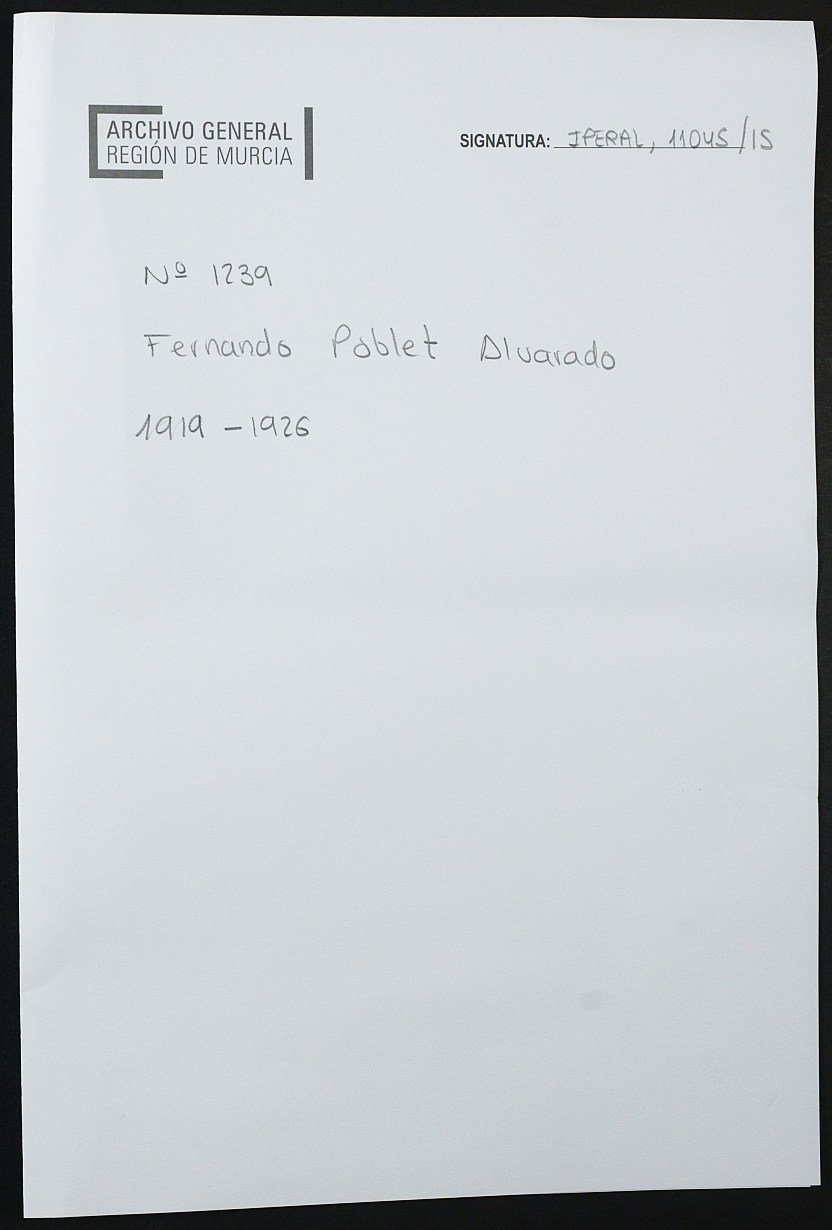 ARCHIVO GENERAL
REGIÓN DE MURCIA
SIGNATURA: IPERAL, 11045/15
Nº 1239
Fernando Poblet Alvarado
1919 - 1926